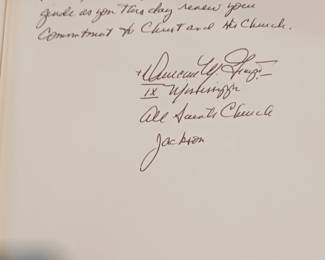 guide as you this day renew your
Commitment to Christ and His Church.
+Duncan M. Gray III
IX Mississippi
All Saints Church
Jackson